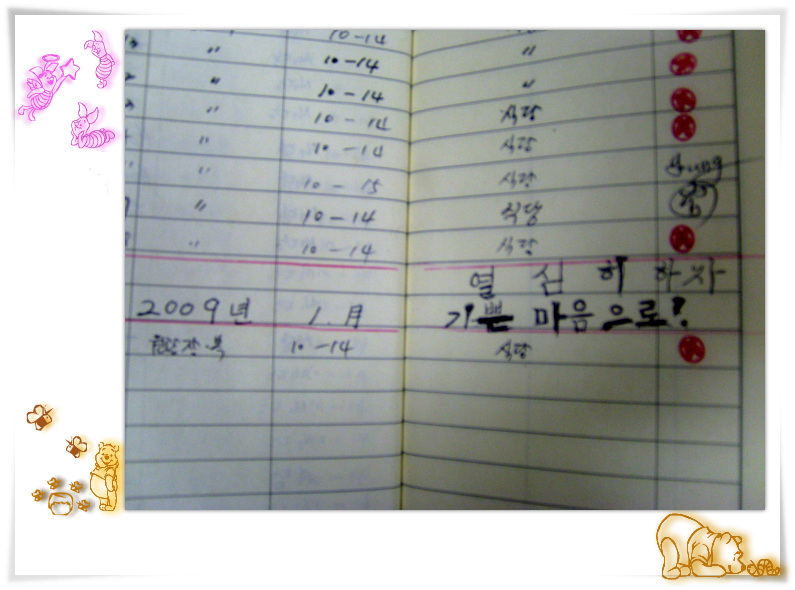 10-14
〃 10-14 〃
〃 10-14 〃
〃 10-14 식당
〃 10-14 식당
〃 10-15 식당
〃 10-14 식당
〃 10-14 식당
열심히 하자
2009년 1.月 기쁜 마음으로!
10-14 식당